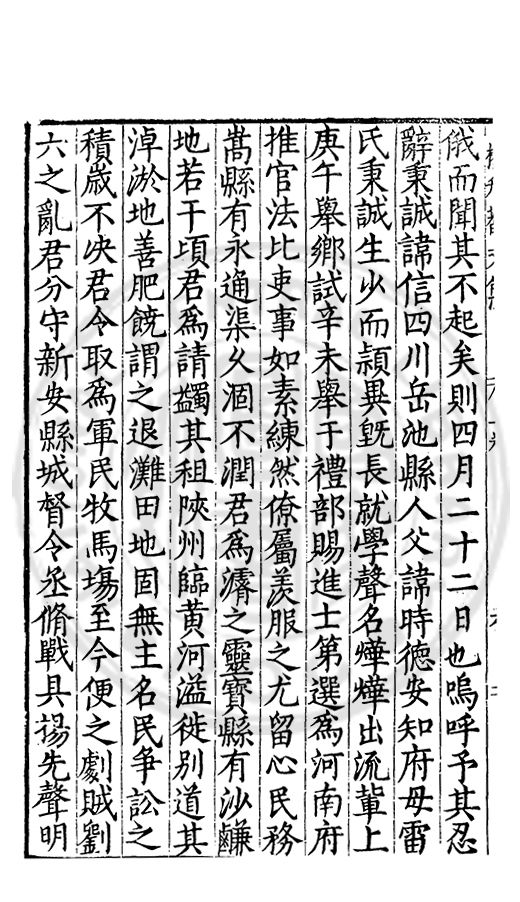 俄而聞其不起矣則四月二十二日也嗚呼予其忍
辭秉誠諱信四川岳池縣人父諱時德安知府母雷
氏秉誠生少而頴異旣長就學聲名燁燁出流輩上
庚午舉鄉試辛未舉于禮部賜進士第選爲河南府
推官法比吏事如素練然僚屬羡服之尤留心民務
嵩縣有永通渠乆涸不潤君爲濬之靈寶縣有沙鏀
地若干頃君爲請蠲其租陝州臨黄河溢徙别道其
淖淤地善肥饒謂之退灘田地固無主名民争訟之
積歲不决君令取爲軍民牧馬塲至今便之劇賊劉
六之亂君分守新安縣城督令丞脩戰具揚先聲明